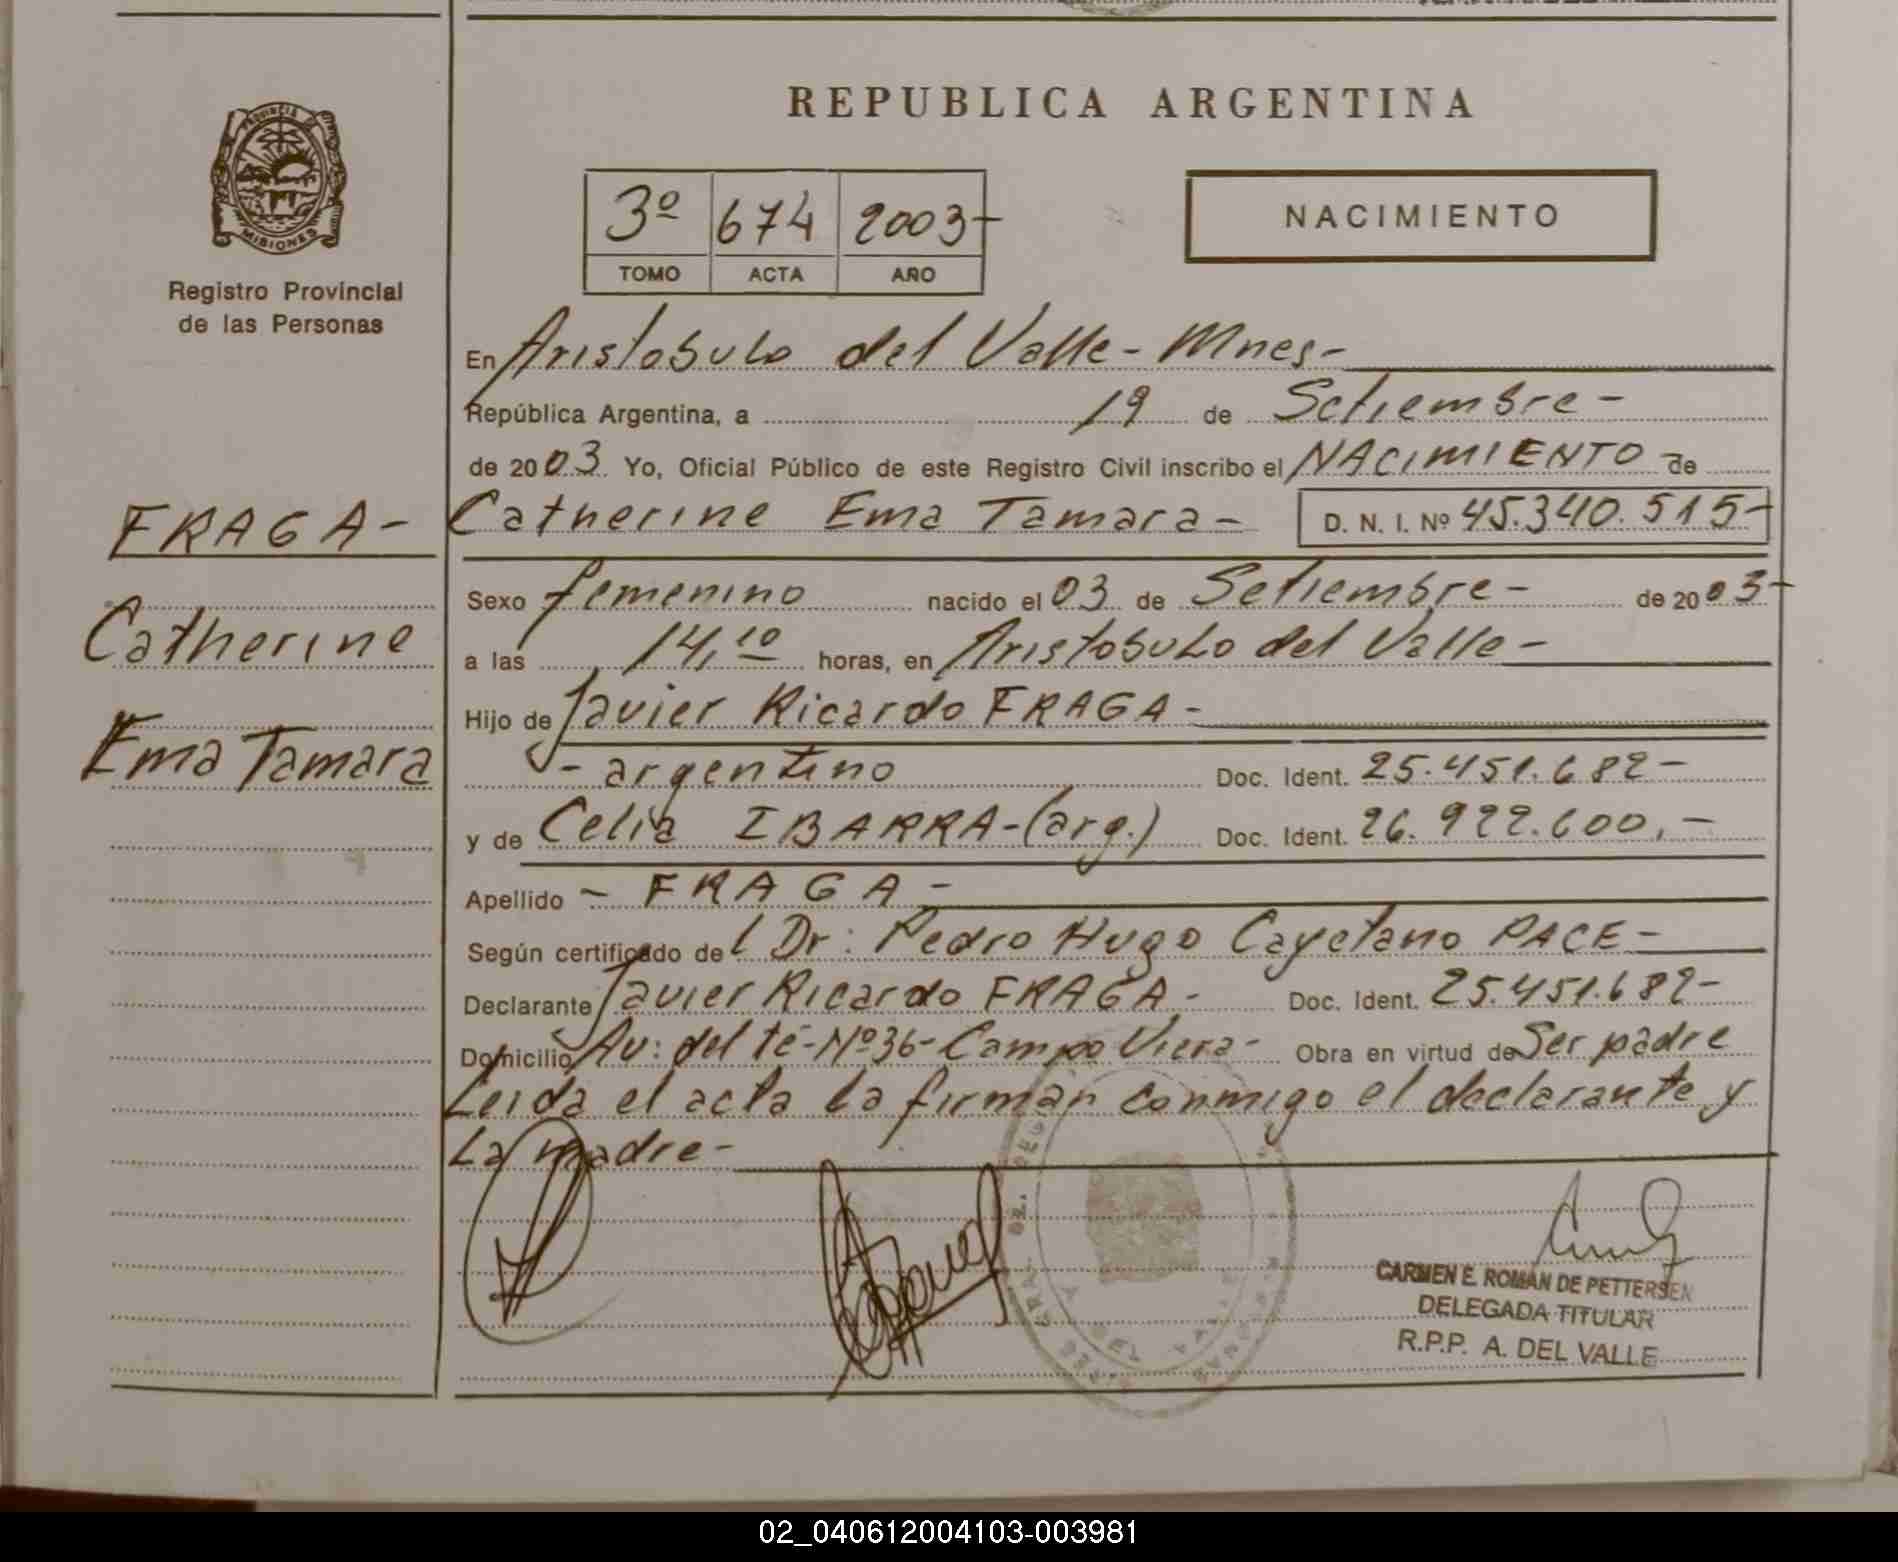 REPUBLICA ARGENTINA
PROVINCIA DE
MISIONES
Registro Provincial
de las Personas
3º 674 2003-
TOMO ACTA AÑO
NACIMIENTO
En Aristobulo del Valle - Mnes-
República Argentina, a 19 de Setiembre -
de 2003. Yo, Oficial Público de este Registro Civil inscribo el NACIMIENTO de
FRAGA-
Catherine
Ema Tamara
Catherine Ema Tamara - D. N. I. Nº 45.340.515-
Sexo femenino nacido el 03 de Setiembre - de 2003-
a las 14,10 horas, en Aristobulo del Valle -
Hijo de Javier Ricardo FRAGA -
- argentino Doc. Ident. 25.451.682-
y de Celia IBARRA-(arg.) Doc. Ident. 26.922.600.-
Apellido - FRAGA -
Según certificado del Dr: Pedro Hugo Cayetano PACE -
Declarante Javier Ricardo FRAGA - Doc. Ident. 25.451.682-
Domicilio Av: del té - Nº36- Campo Viera- Obra en virtud de Ser padre
Leida el acta la firman conmigo el declarante y
la madre -
CARMEN E. ROMAN DE PETTERSEN
DELEGADA TITULAR
R.P.P. A. DEL VALLE
02_040612004103-003981